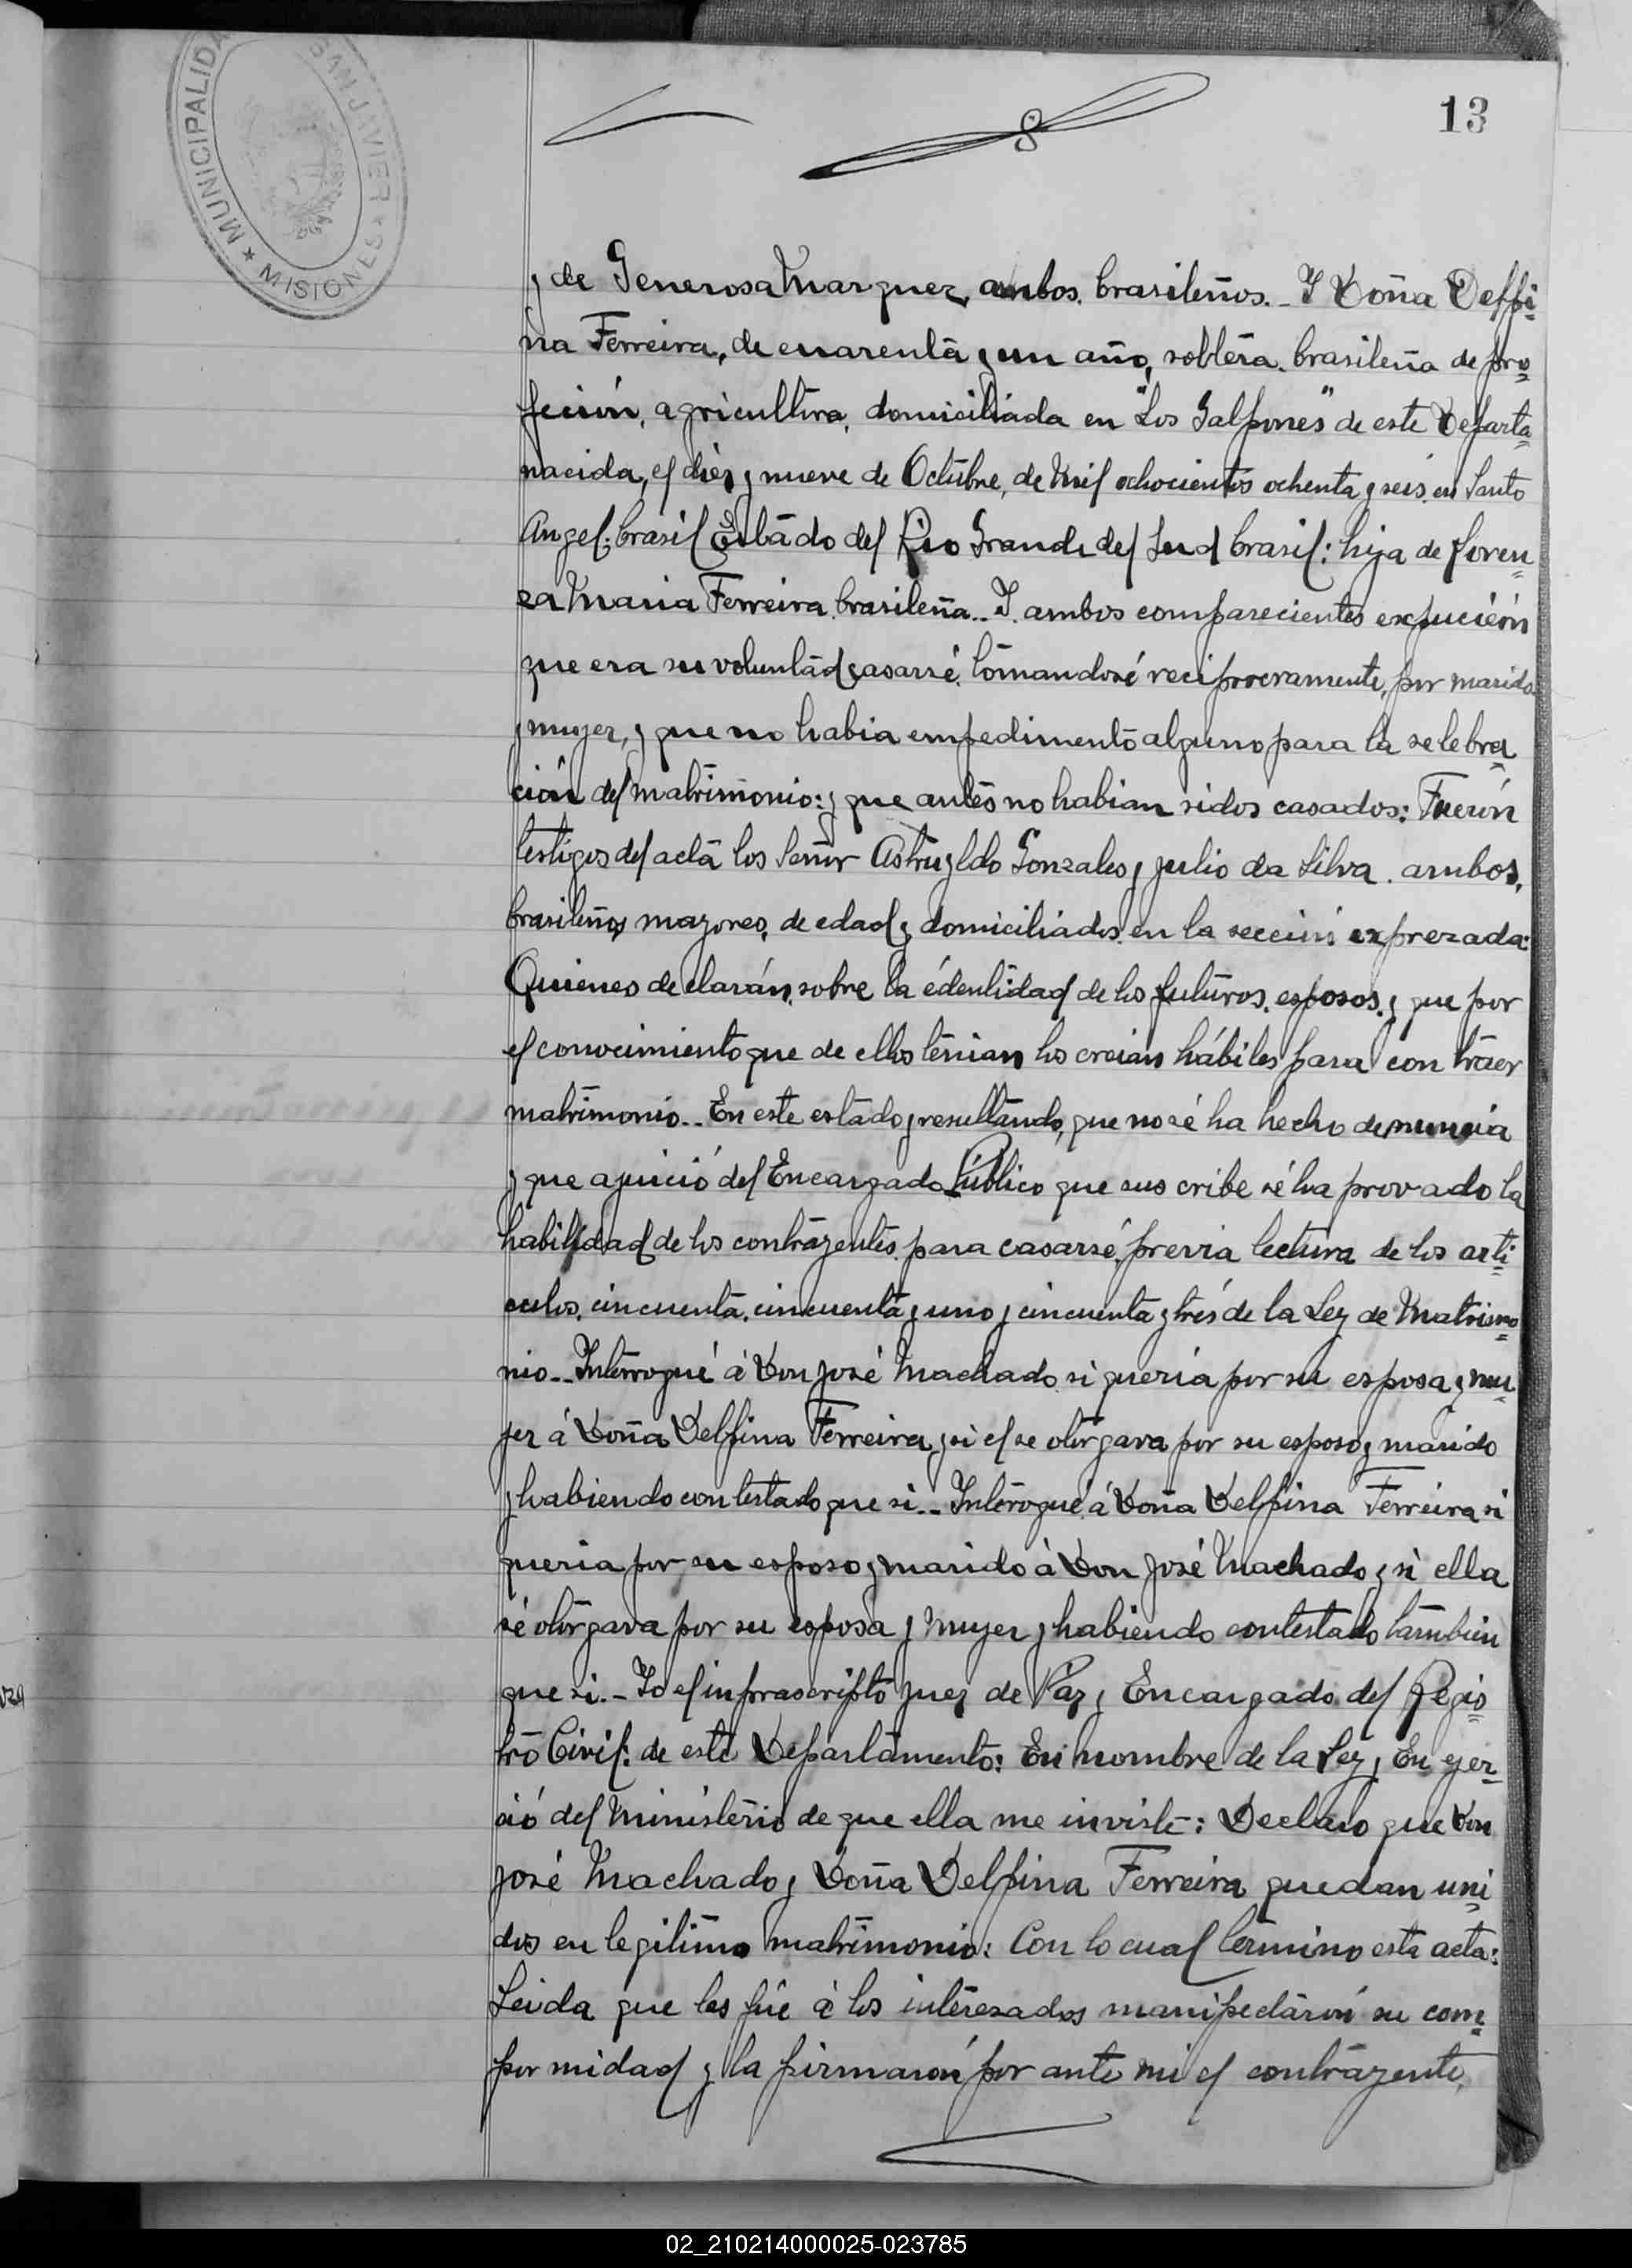 MUNICIPALIDA SAN JAVIER
★ MISIONES ★
13
y de Generosa Marquez, ambos. brasileños. _ Y Doña Delfi=
na Ferreira, de cuarenta y un año, soltera. brasileña de pro=
feción, agricultura, domiciliada en "Los Galpones" de este Departa=
nacida, el diez y nueve de Octubre, de Mil ochocientos ochenta y seis. en Santo
Angel: brasil Estado del Rio Grande del Sud brasil: hija de Loren=
za Maria Ferreira brasileña.. Y. ambos comparecientes expucieón
que era su voluntad casarsé, tomandosé reciprocramente, por marido
y mujer, y que no habia empedimento alguno para la selebra=
ción del matrimonio: y que antes no habian sidos casados: Fuerón
testigos del acta los Señor Gonzales y julio da Silva. ambos,
brasileños mayores, de edad y domiciliados en la sección exprezada:
Quienes declarán, sobre la édentidad de los futuros. esposos. y que por
el conocimiento que de ellos tenian los creian hábiles para contraer
matrimonio.. En este estado y resultando, que nosé ha hecho denuncia
y que ajuició del Encargado Público que suscribe sé ha provado la
habilidad de los contrayentes para casarsé, previa lectura de los arti=
culos, cincuenta, cincuenta y uno y cincuenta y trés de la Ley de Matrimo=
nio.. Interrogué á Don José Machado si queria por su esposa y mu=
jer á Doña Delfina Ferreira y si el se otórgava por su esposo y marido
y habiendo contestado que si.. Interrogué á Doña Delfina Ferreira si
queria por su esposo y marido á Don José Machado y si ella
sé otórgava por su esposa y mujer y habiendo contestado tambien
que si.- Yo el infrascripto juez de Paz y Encargado del Regis=
tro Civil: de este Departamento: En nombre de la Ley, En ejer=
ció del Ministerio de que ella me inviste: Declaro que Don
José Machado y Doña Delfina Ferreira quedan uni=
dos en legitimo matrimonio: Con lo cual termino esta acta:
Leida que les fúe á los interezados manifectarón su com=
formidad y la firmarón por ante mi el contrayente,
02_210214000025-023785